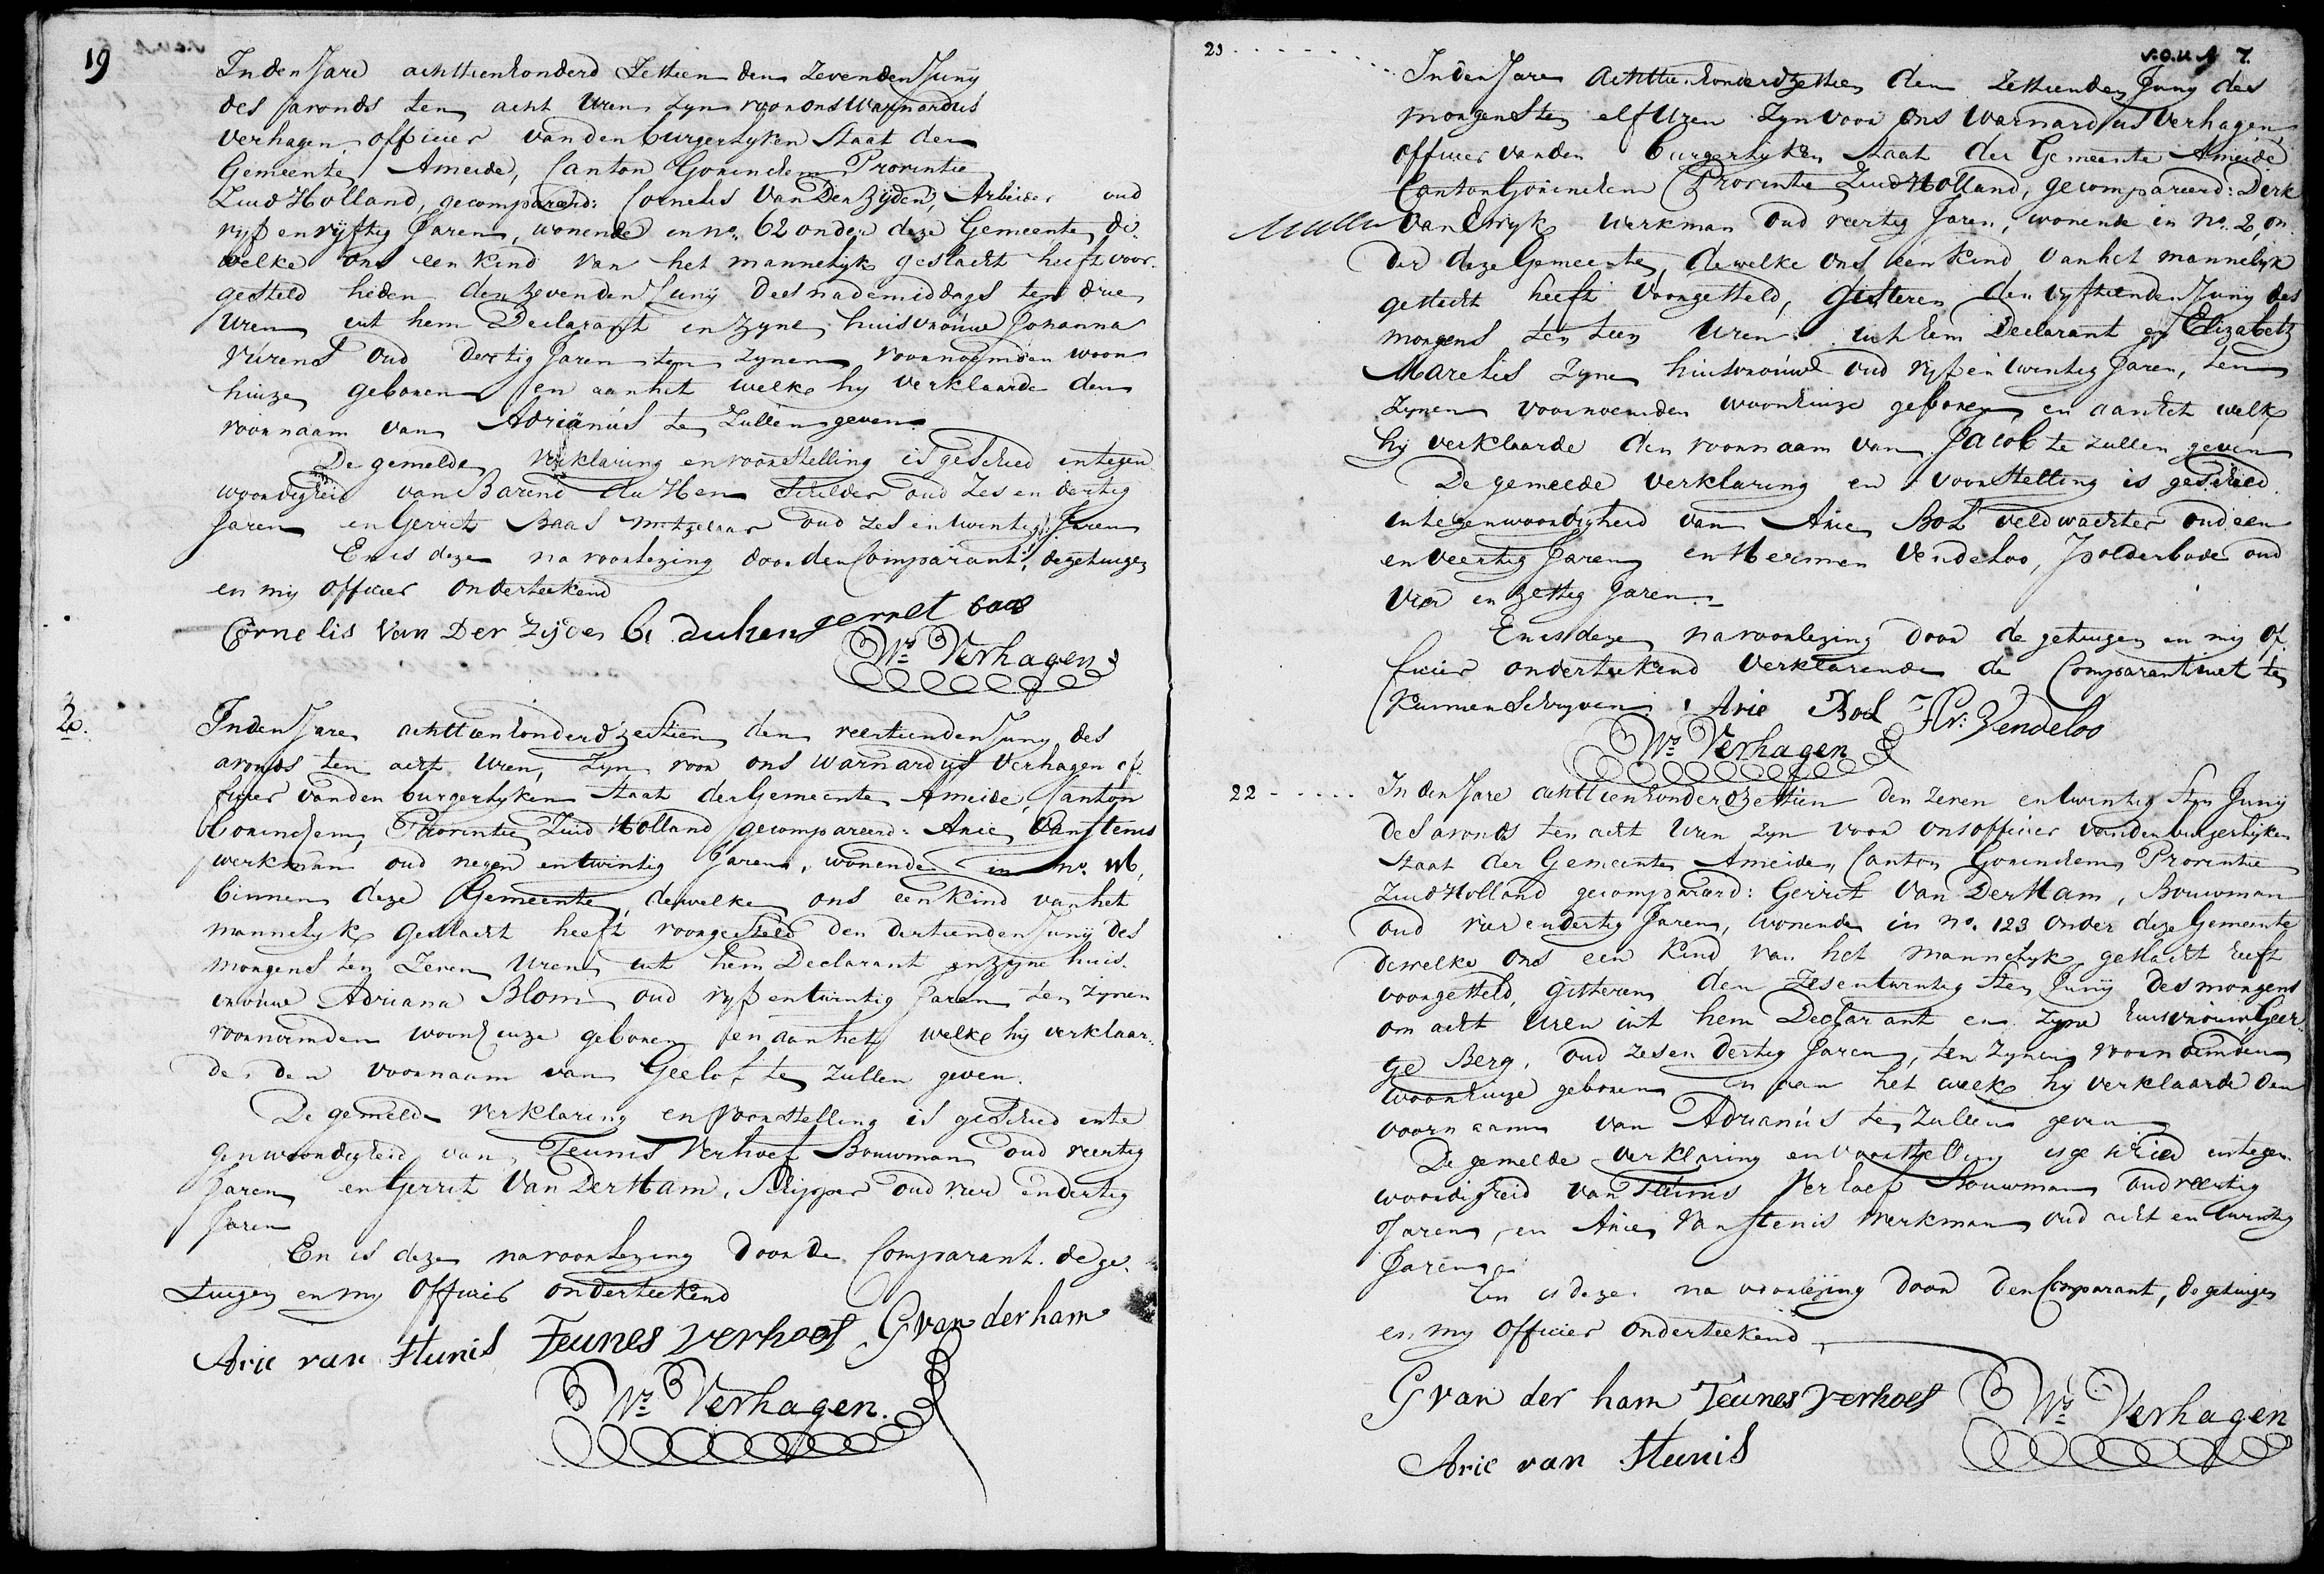 19
In den Jare achttienhonderd Zestien den zevenden Junij
des avonds ten acht Uren zyn voor ons Warnardus
Verhagen, officier van den burgerlyken Staat der
Gemeente Ameide, Canton Gorinchem Provintie
Zuid Holland, gecompareerd: Cornelis Van Der Zijden, Arbeider oud
vyf en vyftig Jaren, wonende in no. 62 onder deze Gemeente, de
welke ons een kind van het mannelyk geslacht heeft voor
gesteld heden den zevenden Junij des nademiddags ten drie
Uren uit hem Declarant en zyne huisvrouwe Johanna
Vurens oud dertig Jaren ten zynen voornoemden woon
huize geboren en aan het welke hy verklaarde den
voornaam van Adriänus te zullen geven.
De gemelde verklaring en voorstelling is geschied in tegen
woordigheid van Barend du Hen Schilder oud Zes en dertig
Jaren en Gerrit Baas metzelaar oud zes en twintig Jaren
En is deze na voorlezing door den Comparant, de getuigen
en my officier onderteekend
Cornelis Van Der Zijden B. duhen gerret baas
Wr. Verhagen
20.
In den Jare achttienhonderd zestien den veertienden Junij des
avonds ten acht Uren, zyn voor ons Warnardus Verhagen of
ficier van den burgerlyken Staat der Gemeente Ameide, Canton
Gorinchem, Provintie Zuid Holland gecompareerd: Arie Van Stenis
werkman oud negen en twintig Jaren, wonende in no.
binnen deze Gemeente, dewelke ons een kind van het
mannelyk geslacht heeft voorgesteld den dertienden Junij des
morgens ten Zeven Uren uit hem Declarant en zyne huis
vrouwe Adriana Blom oud vyf en twintig Jaren ten zynen
voornoemden woonhuize geboren en aan het welke hy verklaar
de, den voornaam van Geelof te zullen geven.
De gemelde verklaring en voorstelling is geschied in te
genwoordigheid van Teunis Verhoef Bouwman oud veertig
Jaren en Gerrit Van Der Ham, Schipper oud vier en dertig
Jaren
En is deze na voorlezing door de Comparant. de ge
tuigen en my Officier onderteekend
Arie van Stenis Teunes Verhoef G van der ham
Wr. Verhagen.
7.
21
In den Jare achttienhonderd zestien den zestienden Juny des
morgens ten elf Uren zyn voor ons Warnardus Verhagen,
officier van den burgerlyken staat der Gemeente Ameide
Canton Gorinchem Provintie Zuid Holland, gecompareerd: Dirk
van Ewyk werkman oud veertig Jaren, wonende in no. 2, on
der deze Gemeente, dewelke ons een kind van het mannelyk
geslacht heeft voorgesteld, gisteren den vyftienden Junij des
morgens ten tien Uren uit hem Declarant en Elizabeth
Marelis zyne huisvrouwe oud vyf en twintig Jaren, ten
zynen voornoemden woonhuize geboren, en aan het welk
hy verklaarde den voornaam van Jacob te zullen geven
De gemelde verklaring en voorstelling is geschied
in tegenwoordigheid van Arie Bol veldwachter oud een
en veertig Jaren en Hermen Vendeloo, Polderbode oud
vier en zestig Jaren.
En is deze na voorlezing door de getuigen en my of
ficier onderteekend verklarende de Comparant niet te
kunnen Schryven. Arie Bol Hr: Vendeloo
Wr. Verhagen
22
In den Jare achttienhonderd zestien den zeven en twintig sten Junij
des avonds ten acht Uren zyn voor ons officier van den burgerlyken
Staat der Gemeente Ameide, Canton Gorinchem Provintie
Zuid Holland gecompareerd: Gerrit Van Der Ham, Bouwman
oud vier en dertig Jaren, wonende in no. 123 onder deze Gemeente
dewelke ons een kind van het mannelyk geslacht heeft
voorgesteld, gisteren den Zes en twintig sten Junij des morgens
om acht Uren uit hem Declarant en zyne huisvrouw Geer
ge Berg, oud zes en dertig Jaren, ten zynen voornoemden
woonhuize geboren en aan het welk hy verklaarde den
voornaam van Adrianus te zullen geven.
De gemelde verklaring en voorstelling is geschied in tegen
woordigheid van Teunis Verhoef Bouwman oud veertig
Jaren, en Arie Van Stenis Werkman oud acht en twintig
Jaren
En is deze na voorlezing door den Comparant, de getuigen
en my Officier onderteekend
G van der ham Teunes Verhoef Wr. Verhagen
Arie van Stenis